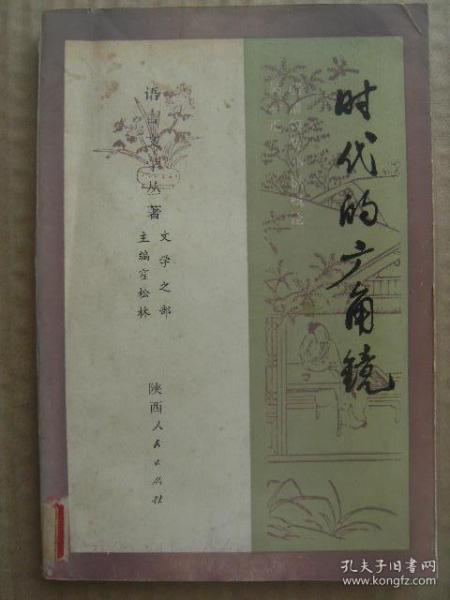 时代的广角镜
语言文学丛著
文学之部
主编霍松林
陕西人民出版社
孔夫子旧书网
www.kongfz.com